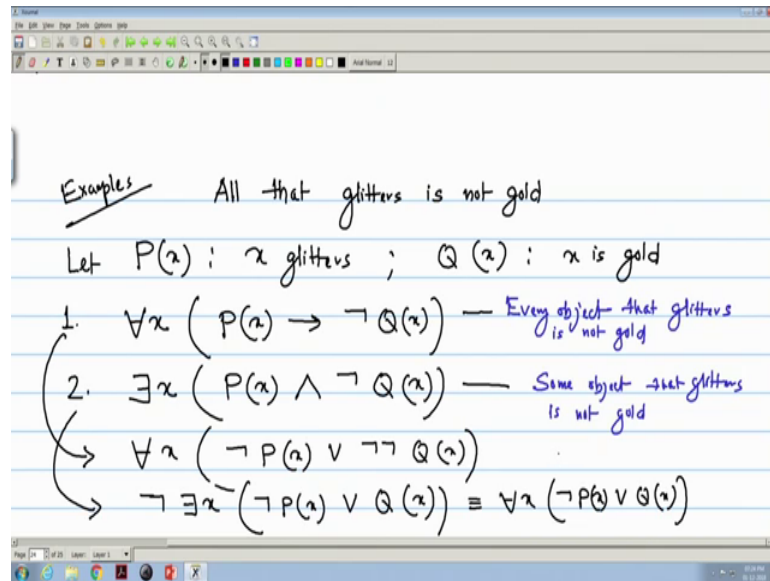 Journal
File Edit View Page Tools Options Help
Arial Normal 12
Examples All that glitters is not gold
Let P(x) : x glitters ; Q(x) : x is gold
1. ∀x ( P(x) → ¬ Q(x) ) — Every object that glitters is not gold
2. ∃x ( P(x) ∧ ¬ Q(x) ) — Some object that glitters is not gold
∀x ( ¬ P(x) ∨ ¬¬ Q(x) )
¬ ∃x ( ¬ P(x) ∨ Q(x) ) ≡ ∀x ( ¬P(x) ∨ Q(x) )
Page 24 of 25 Layer: Layer 1